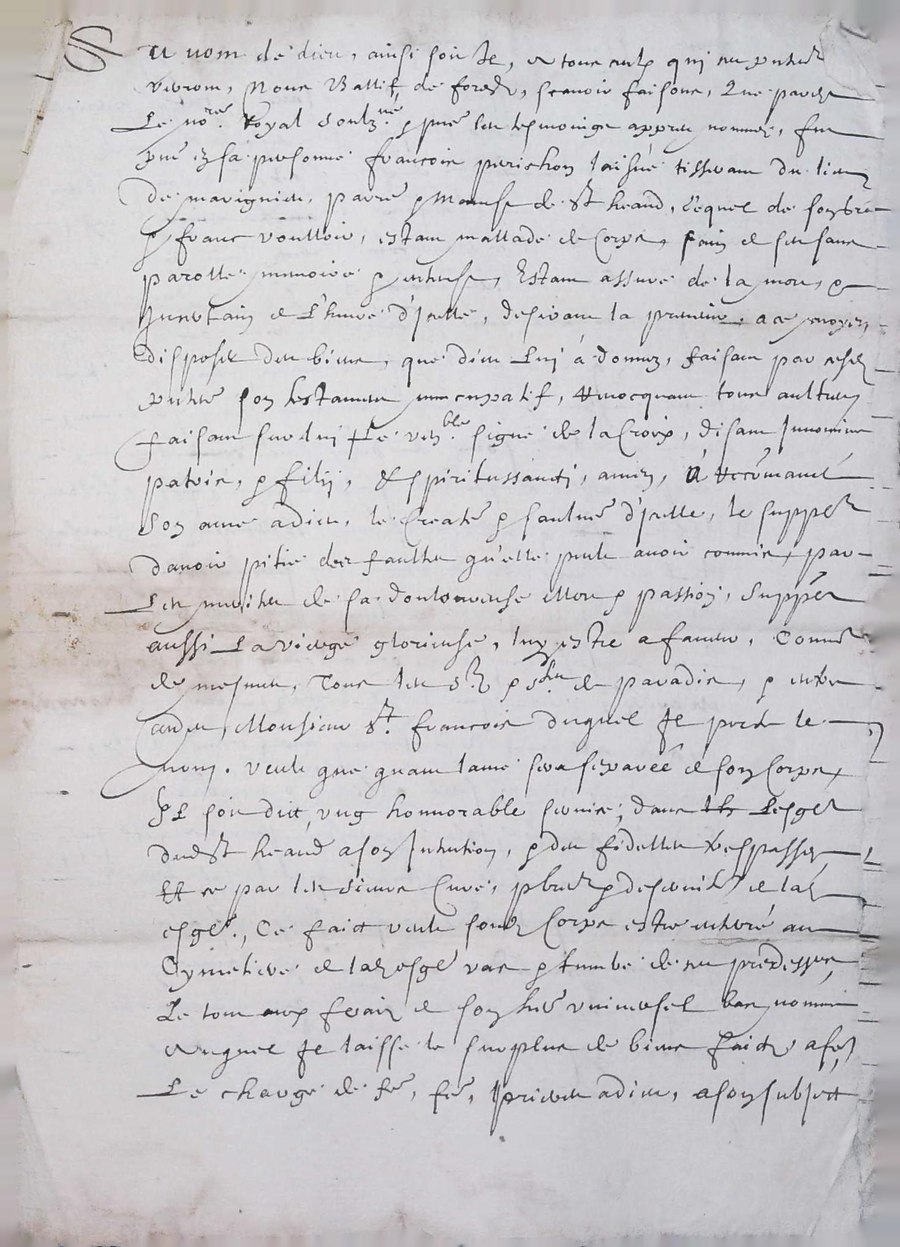 Au nom de dieu, ainsi soit Il, a tous ceulx qui ces pntes
verront, Nous Baillif de forestz, scavoir faisons, Que pardevt
Le no.re Royal soubz.né & pns les tesmoings appres nommez, fut
pnt en sa personne francois perichon laisné tissiran du lieu
de marignieu, parre & Mandemt de St heand, Lequel de son bon
& franc voulloir, estant mallade de Corps, sain de ses sans
parolle memoire & entendemt, Estant assuré de la mort, &
Incertain de L'heure d'Icelle, desirant la prevenir a ce moyen,
disposer des biens, que dieu Luy á donnez, faisant par cesd
pntes son testament nuncupatif, Revocquant tous aultres
faisant sur luy Le vén.ble signe de la Croix, disant Innomine
patris, & filij, & spiritussancti, amen, A Recomandé
Son ame a dieu, le Createur & saulveur d'Icelle, le supplit
davoir pitié des faultes qu'elle peult avoir commis, par
Les merites de sa douloureuse Mort & passion, Suppliet
aussi La vierge glorieuse, luy estre a faveur, Comme
de mesmes, Tous les Stz & Stes de paradis, & entre
aultres Monsieur St. francois duquel Je porte le
nom. veult que quant lame sera separéé de son Corps,
Il soit dict, ung honnorable service, dans Lesglise
dudt St heand a son Intention, & des fidelles trespassez,
Et ce par les sieurs Curé, pbres & desservits de lad
esglé., Ce faict veult sondt Corps estre enterré au
Cymetiere de lad esglé vas & tumbe de ses predesseurs,
Le tout aux fraiz de son her universel bas nommé
Auquel Je laisse le surplus de biens faictz a sesd
Le charge de fe, fe, prieres a dieu, a son subject